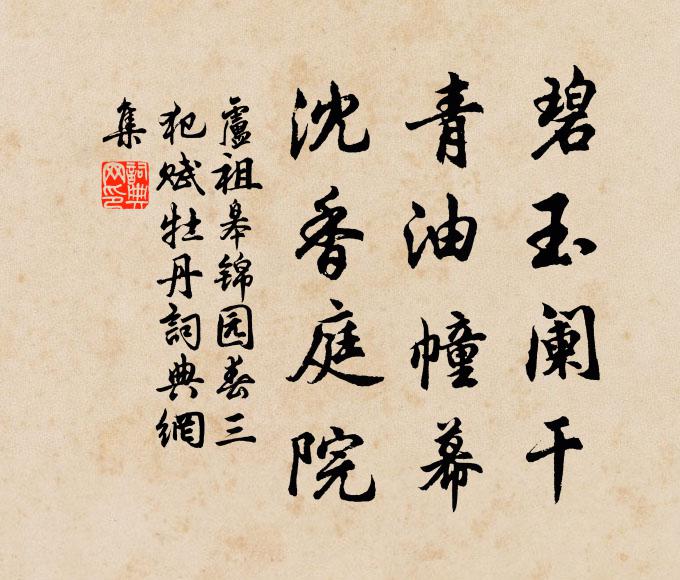 碧玉阑干
青油幢幕
沈香庭院
盧祖皋锦园春三
犯赋牡丹詞典網
集
詞典网印